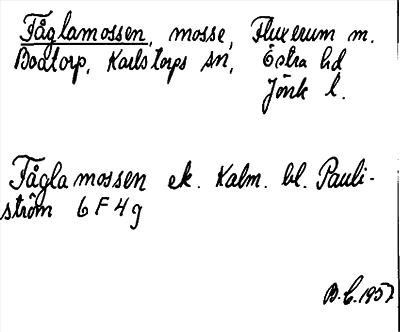 Fåglamossen, mosse, Fluxerum m.
Bodtorp, Karlstorps sn, Östra hd
Jönk l.
Fåglamossen ek. Kalm. bl. Pauli-
ström 6 F 4 g
B.E. 1957